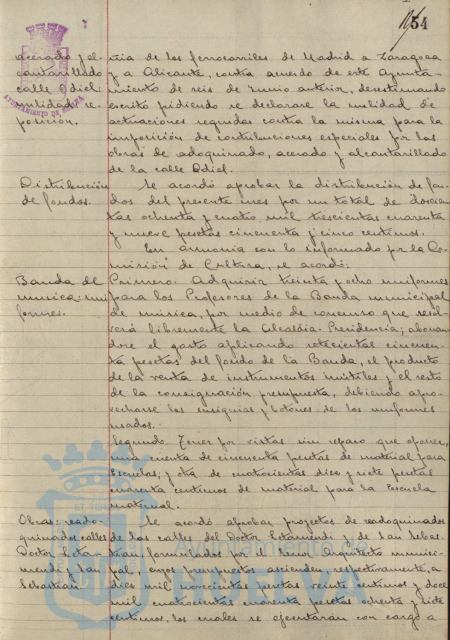 54
acerado y al-
cantarillado
calle Odiel
nulidad re-
posición.
AYUNTAMIENTO DE HUELVA
ñia de los ferrocarriles de Madrid a Zaragoza
y a Alicante, contra acuerdo de este Ayunta-
miento de seis de Junio anterior, desestimando
escrito pidiendo se declarase la nulidad de
actuaciones seguidas contra la misma para la
imposición de contribuciones especiales por las
obras de adoquinado, acerado y alcantarillado
de la calle Odiel.
Distribución
de fondos.
Se acordó aprobar la distribución de fon-
dos del presente mes por un total de doscien-
tas ochenta y cuatro mil trescientas cuarenta
y nueve pesetas cincuenta y cinco centimos.
En armonia con lo informado por la Co-
misión de Cultura, se acordó:
Banda de
musica: uni-
formes.
Primero. Adquirir treinta y ocho uniformes
para los Profesores de la Banda municipal
de música, por medio de concurso que resol-
verá libremente la Alcaldia-Presidencia; abonan-
dose el gasto aplicando setecientas cincuen-
ta pesetas del fondo de la Banda, el producto
de la venta de instrumentos inútiles y el resto
de la consignación presupuesta, debiendo apro-
vecharse las insignias y botones de los uniformes
usados.
Segundo. Tener por vistas sin reparo que oponer,
una cuenta de cincuenta pesetas de material para
Escuelas; y otra de cuatrocientas diez y siete pesetas
cuarenta centimos de material para la Escuela
maternal.
Obras: reado-
quinados calles
Doctor Letamendi y San
Sebastian
Se acordó aprobar proyectos de readoquinados
de las calles del Doctor Letamendi y de San Sebas-
tian, formulados por el Señor Arquitecto munici-
pal, cuyos presupuestos ascienden respectivamente, a
diez mil novecientas pesetas veinte centimos y doce
mil cuatrocientas cuarenta pesetas ochenta y siete
centimos, los cuales se ejecutarán con cargo a
Ayuntamiento de
HUELVA